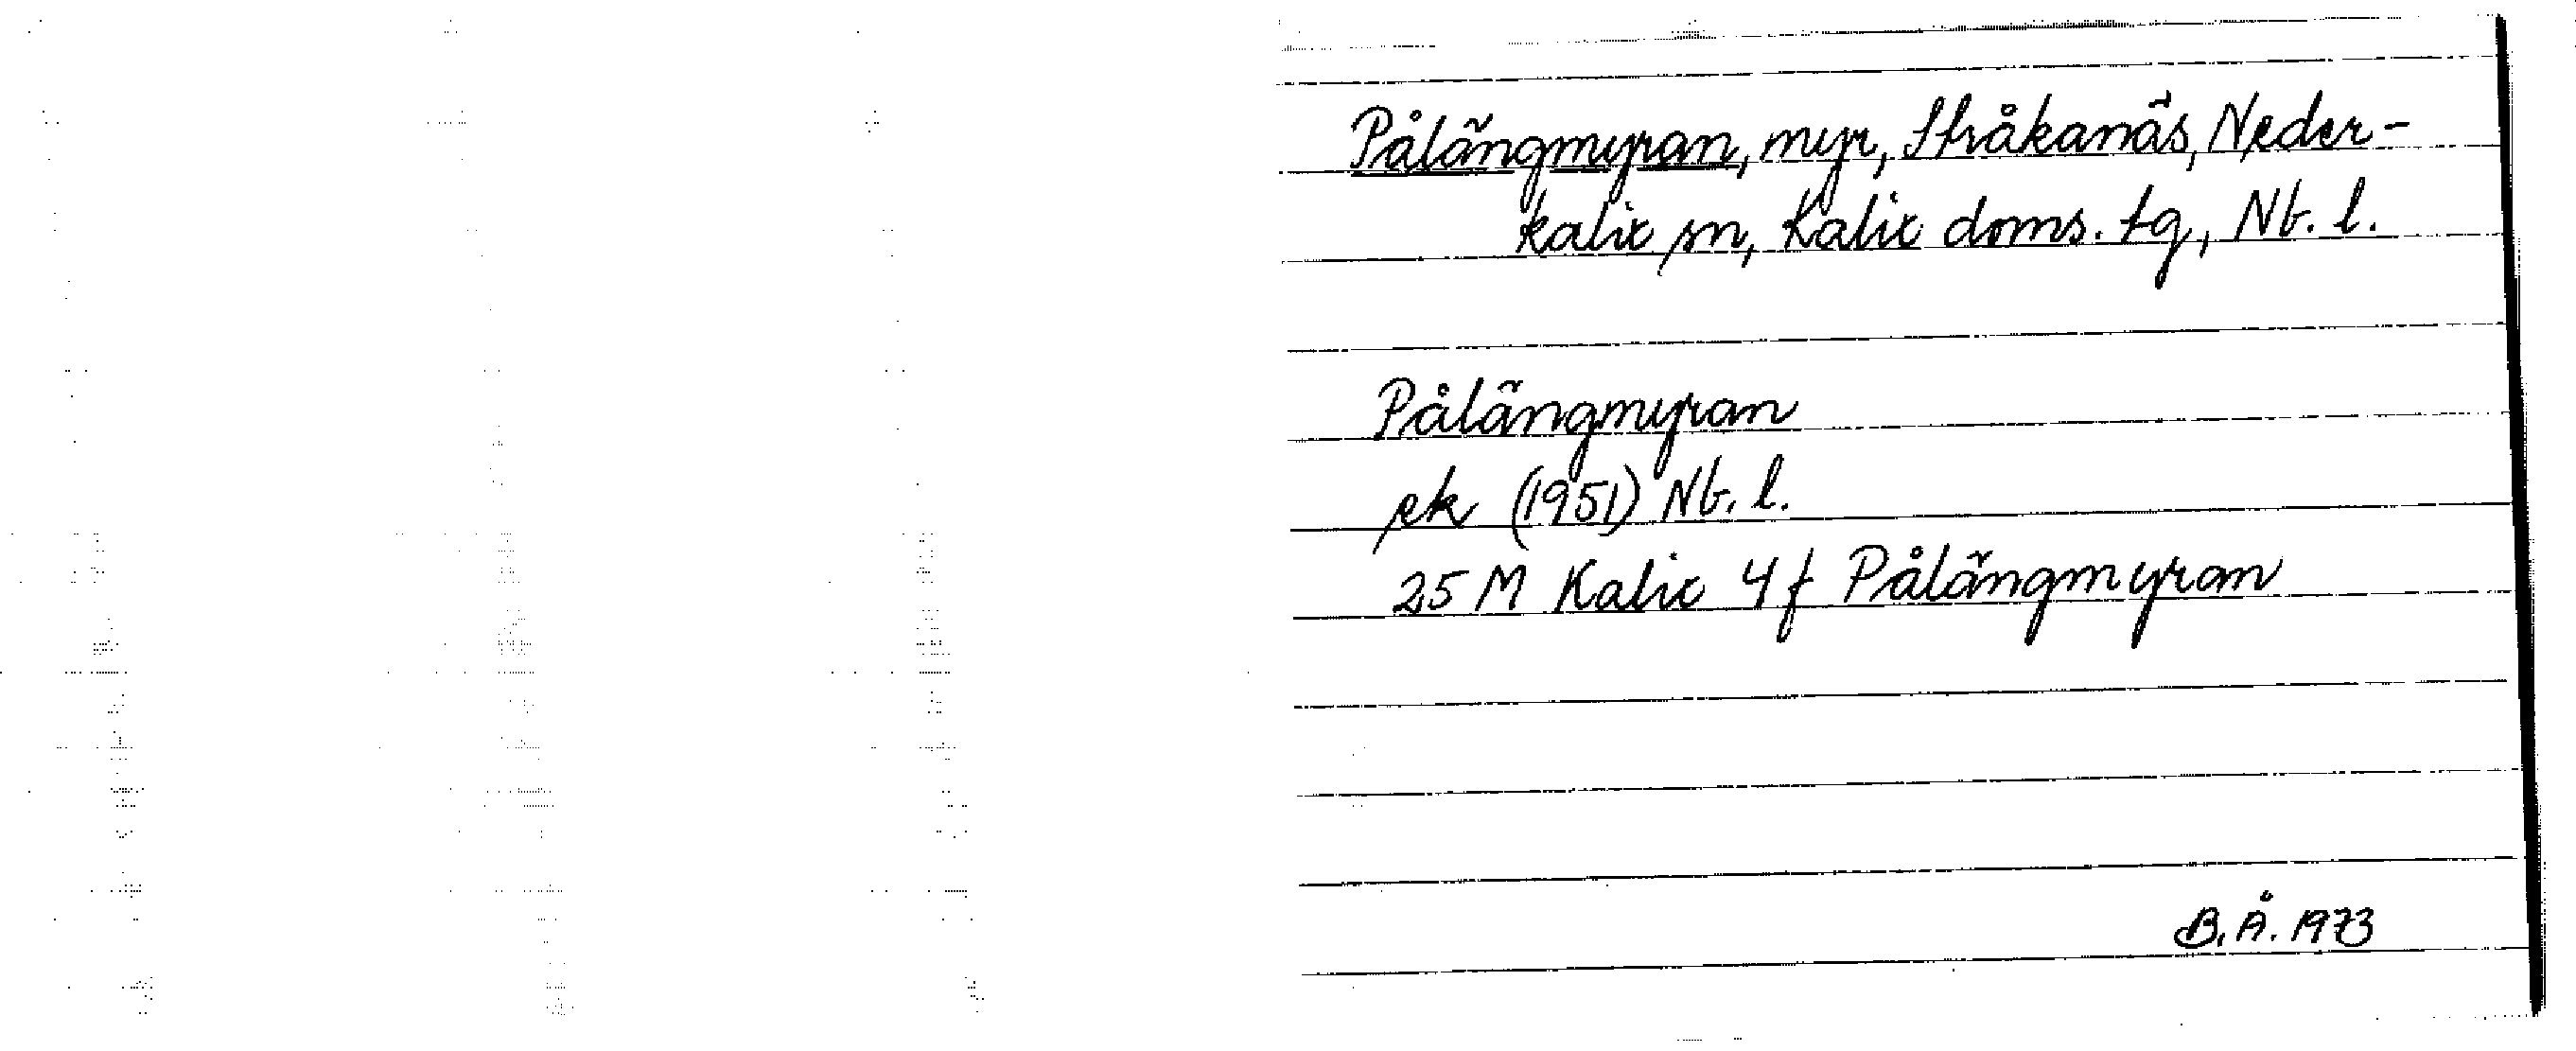 Pålängmyran, myr, Stråkanäs, Neder-
kalix sn, Kalix doms. tg, Nb. l.
Pålängmyran
ek (1951) Nb. l.
25 M Kalix 4 f Pålängmyran
B. Å. 1973